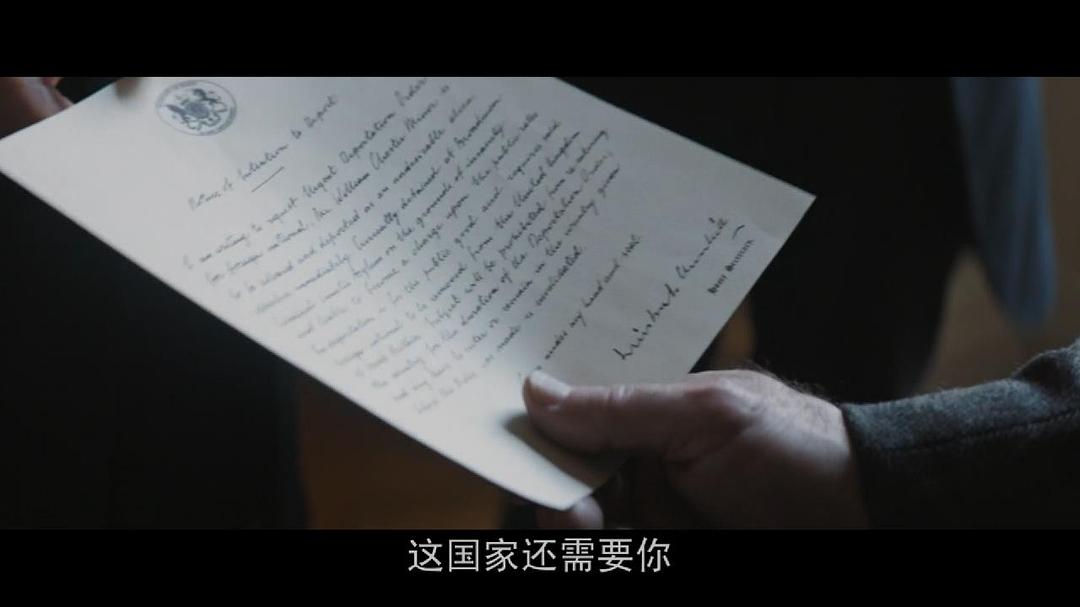 Notice of Intention to Deport
I am writing to request Urgent Deportation Order
for foreign national, Mr William Chester Minor is
to be released and deported as an undesirable alien
effective immediately. Currently detained at Broadmoor
criminal lunatic asylum on the grounds of insanity
and liable to become a charge upon the public rates
deportation is for the public good and requires said
foreign national to be removed from the United Kingdom
subject will be prohibited from re-entering
the country for the duration of the Deportation Order
not any leave to enter or remain in the country given
the Order is made is invalidated.
under my hand and seal.
Winston S. Churchill
这国家还需要你